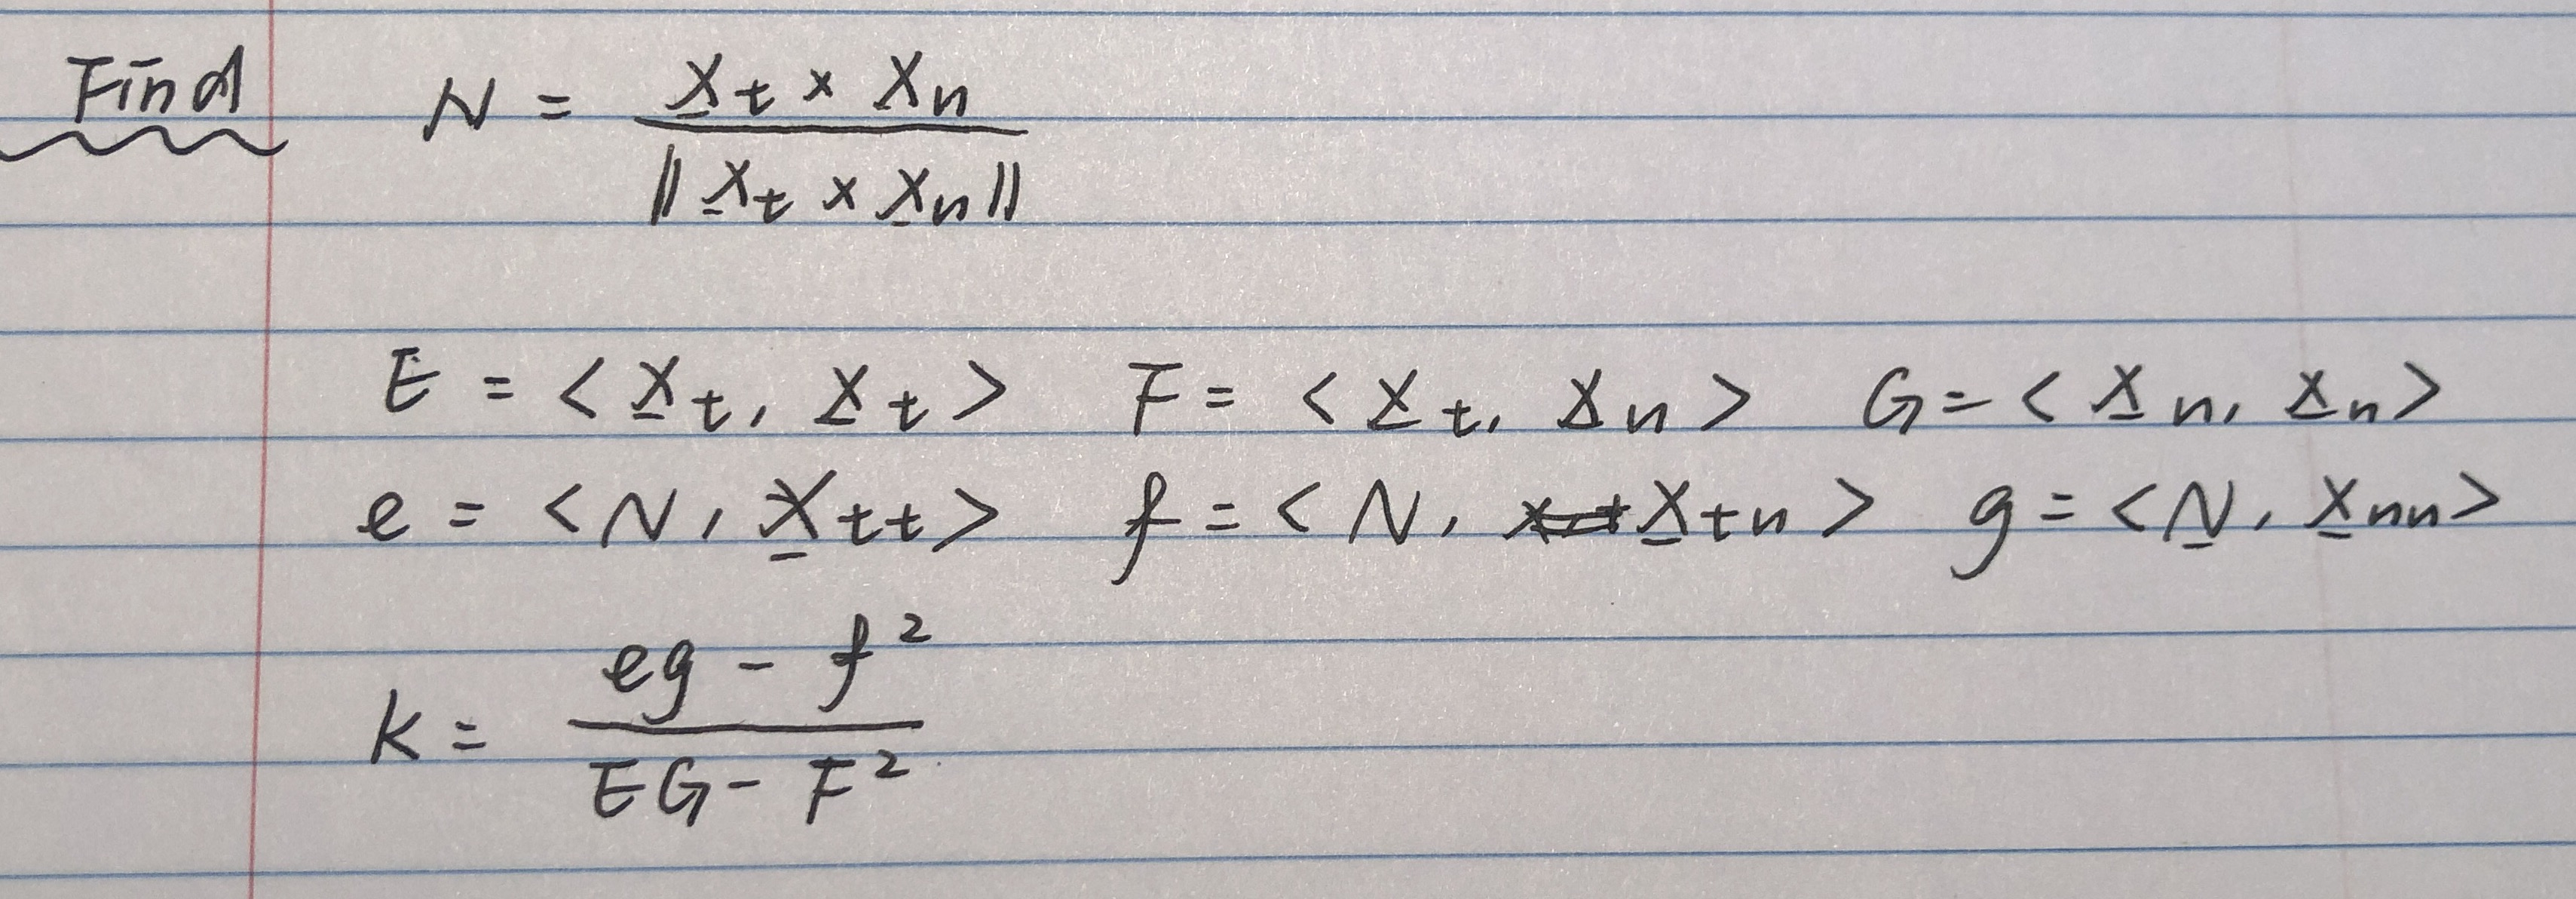 Find N = X_t × X_n / ‖ X_t × X_n ‖
E = < X_t, X_t > F = < X_t, X_n > G = < X_n, X_n >
e = < N, X_tt > f = < N, X_tn > g = < N, X_nn >
K = eg - f² / EG - F²